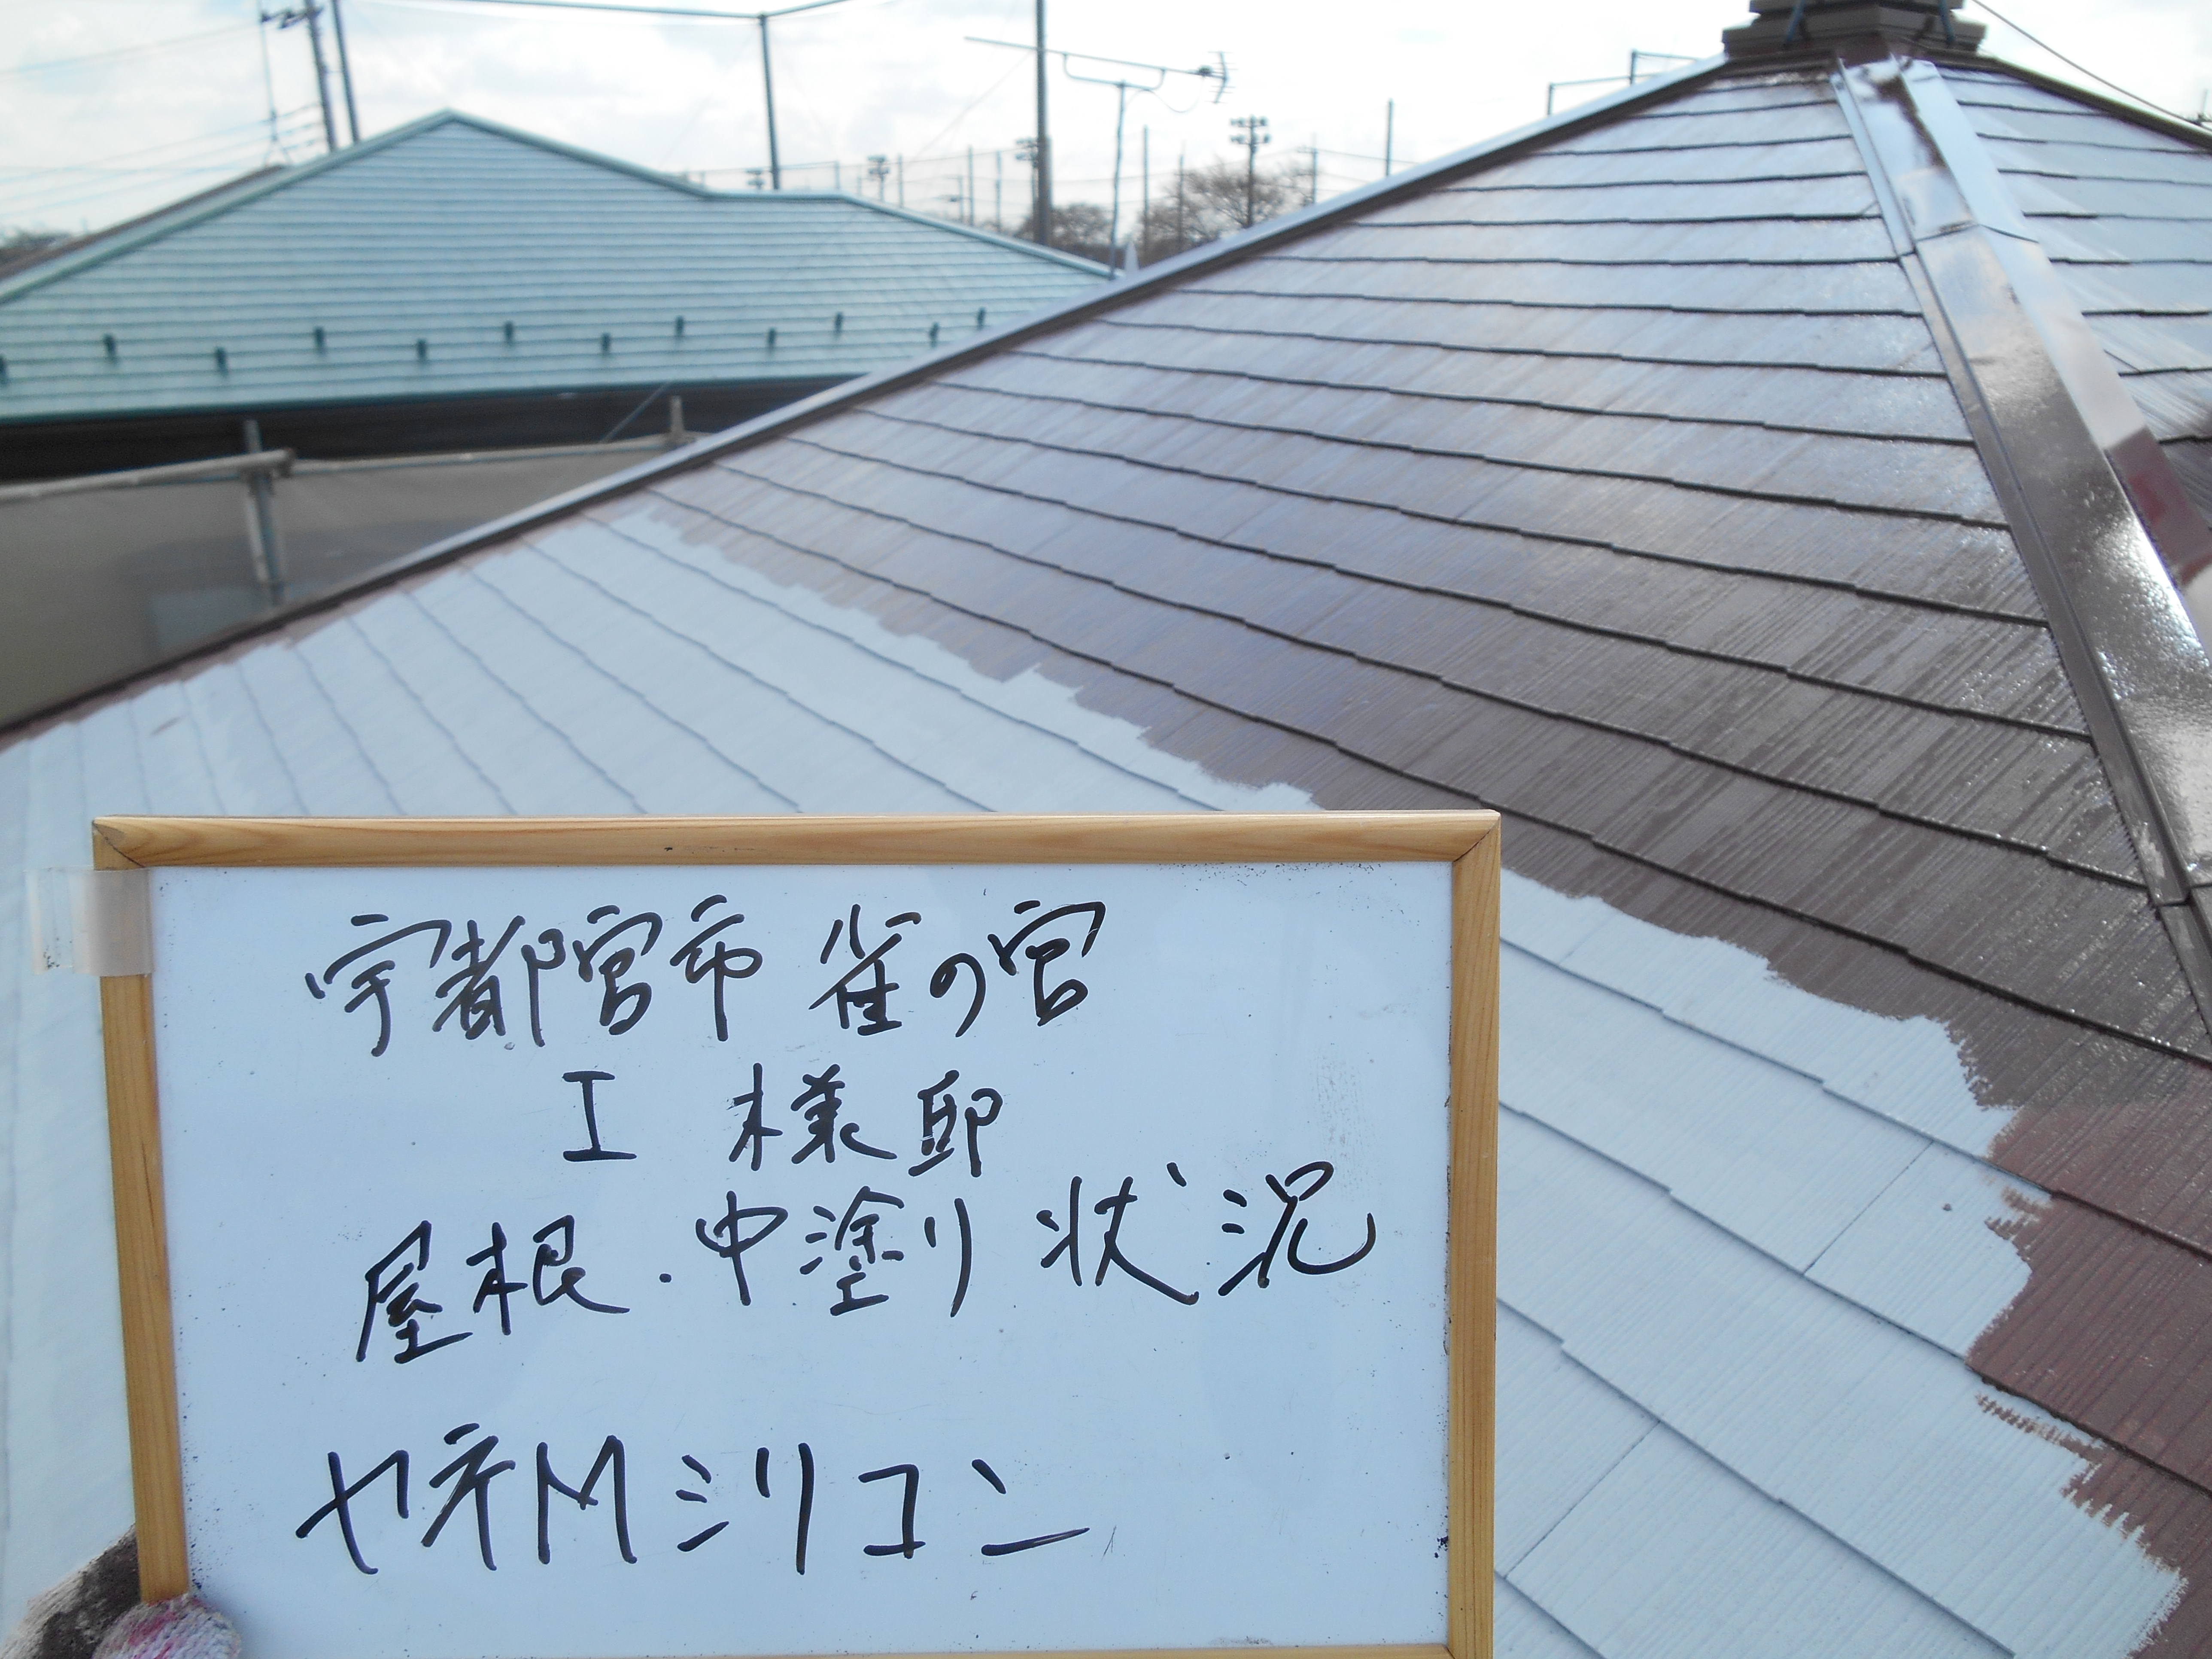 宇都宮市 雀の宮
I 様邸
屋根・中塗り 状況
ヤネMシリコン